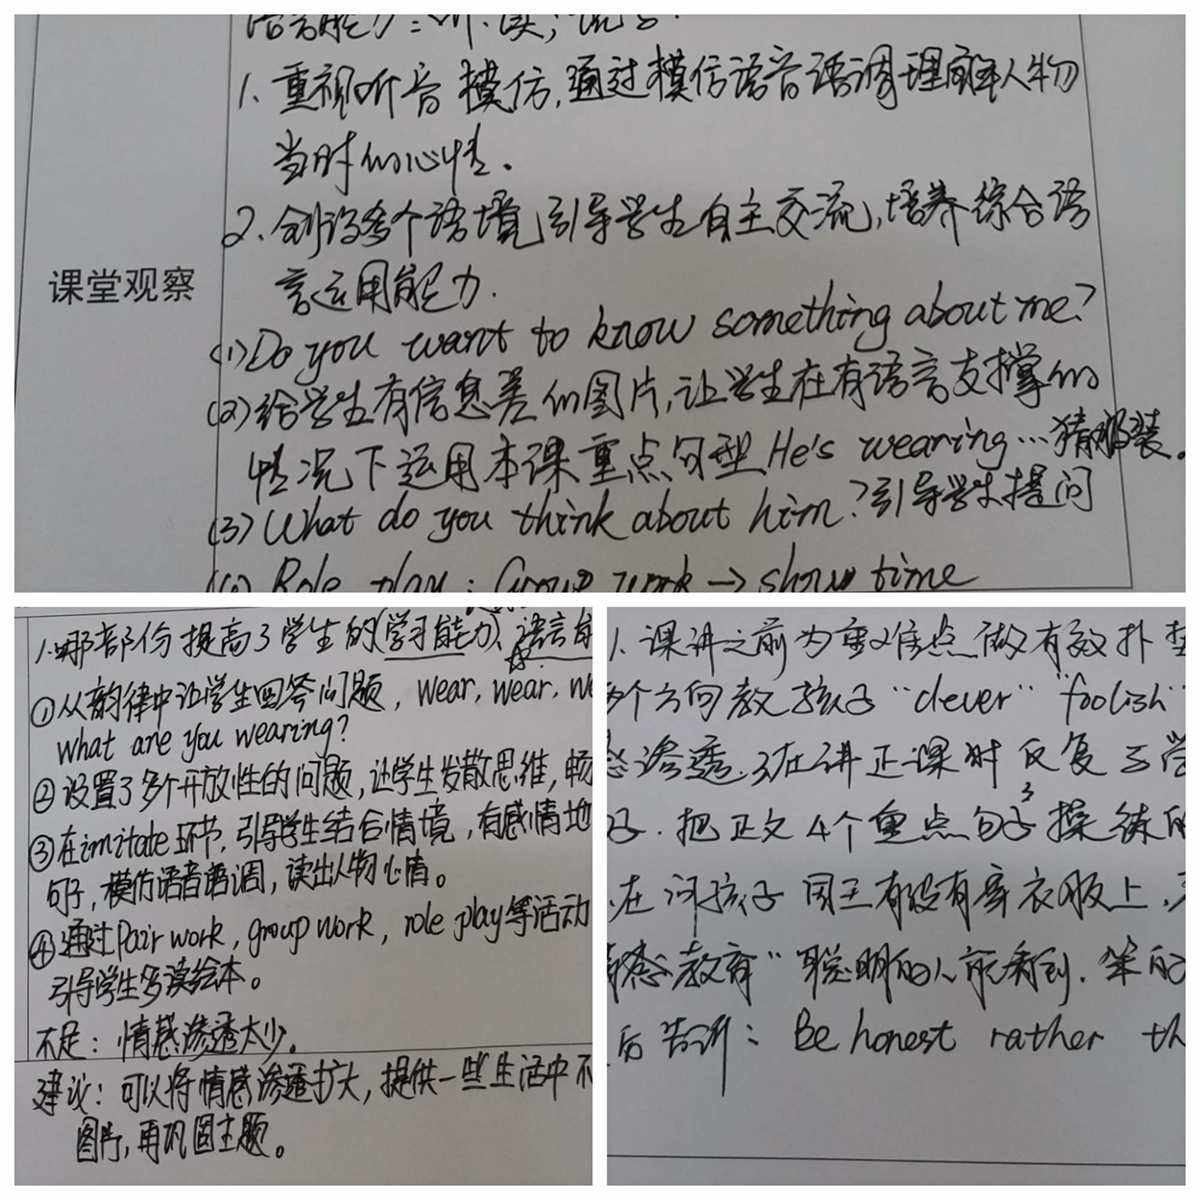 语言能力：听、读，说
1. 重视听音模仿，通过模仿语音语调理解人物
当时的心情。
2. 创设多个语境，引导学生自主交流，培养综合语
言运用能力.
课堂观察
(1) Do you want to know something about me?
(2) 给学生有信息差的图片，让学生在有语言支撑的
情况下运用本课重点句型He's wearing…猜服装。
(3) What do you think about him? 引导学生提问
Role play: Group work → show time
1. 哪部分提高了学生的(学习能力、语言
① 从韵律中让学生回答问题，wear, wear,
What are you wearing?
② 设置了多个开放性的问题，让学生发散思维，畅
③ 在imitate环节，引导学生结合情境，有感情地
句子，模仿语音语调，读出人物心情。
④ 通过Pair work, group work, role play等活动
引导学生多读绘本。
不足：情感渗透太少。
建议：可以将情感渗透扩大，提供一些生活中不
图片，再巩固主题。
1. 课讲之前为重难点做有效扑
多个方向教孩子 "clever" "foolish"
渗透. 3在讲正课时反复与学
子. 把正文4个重点句子操练的
在问孩子国王有没有穿衣服上，
情感教育 "聪明的人能看到. 笨的
后告诉：Be honest rather th